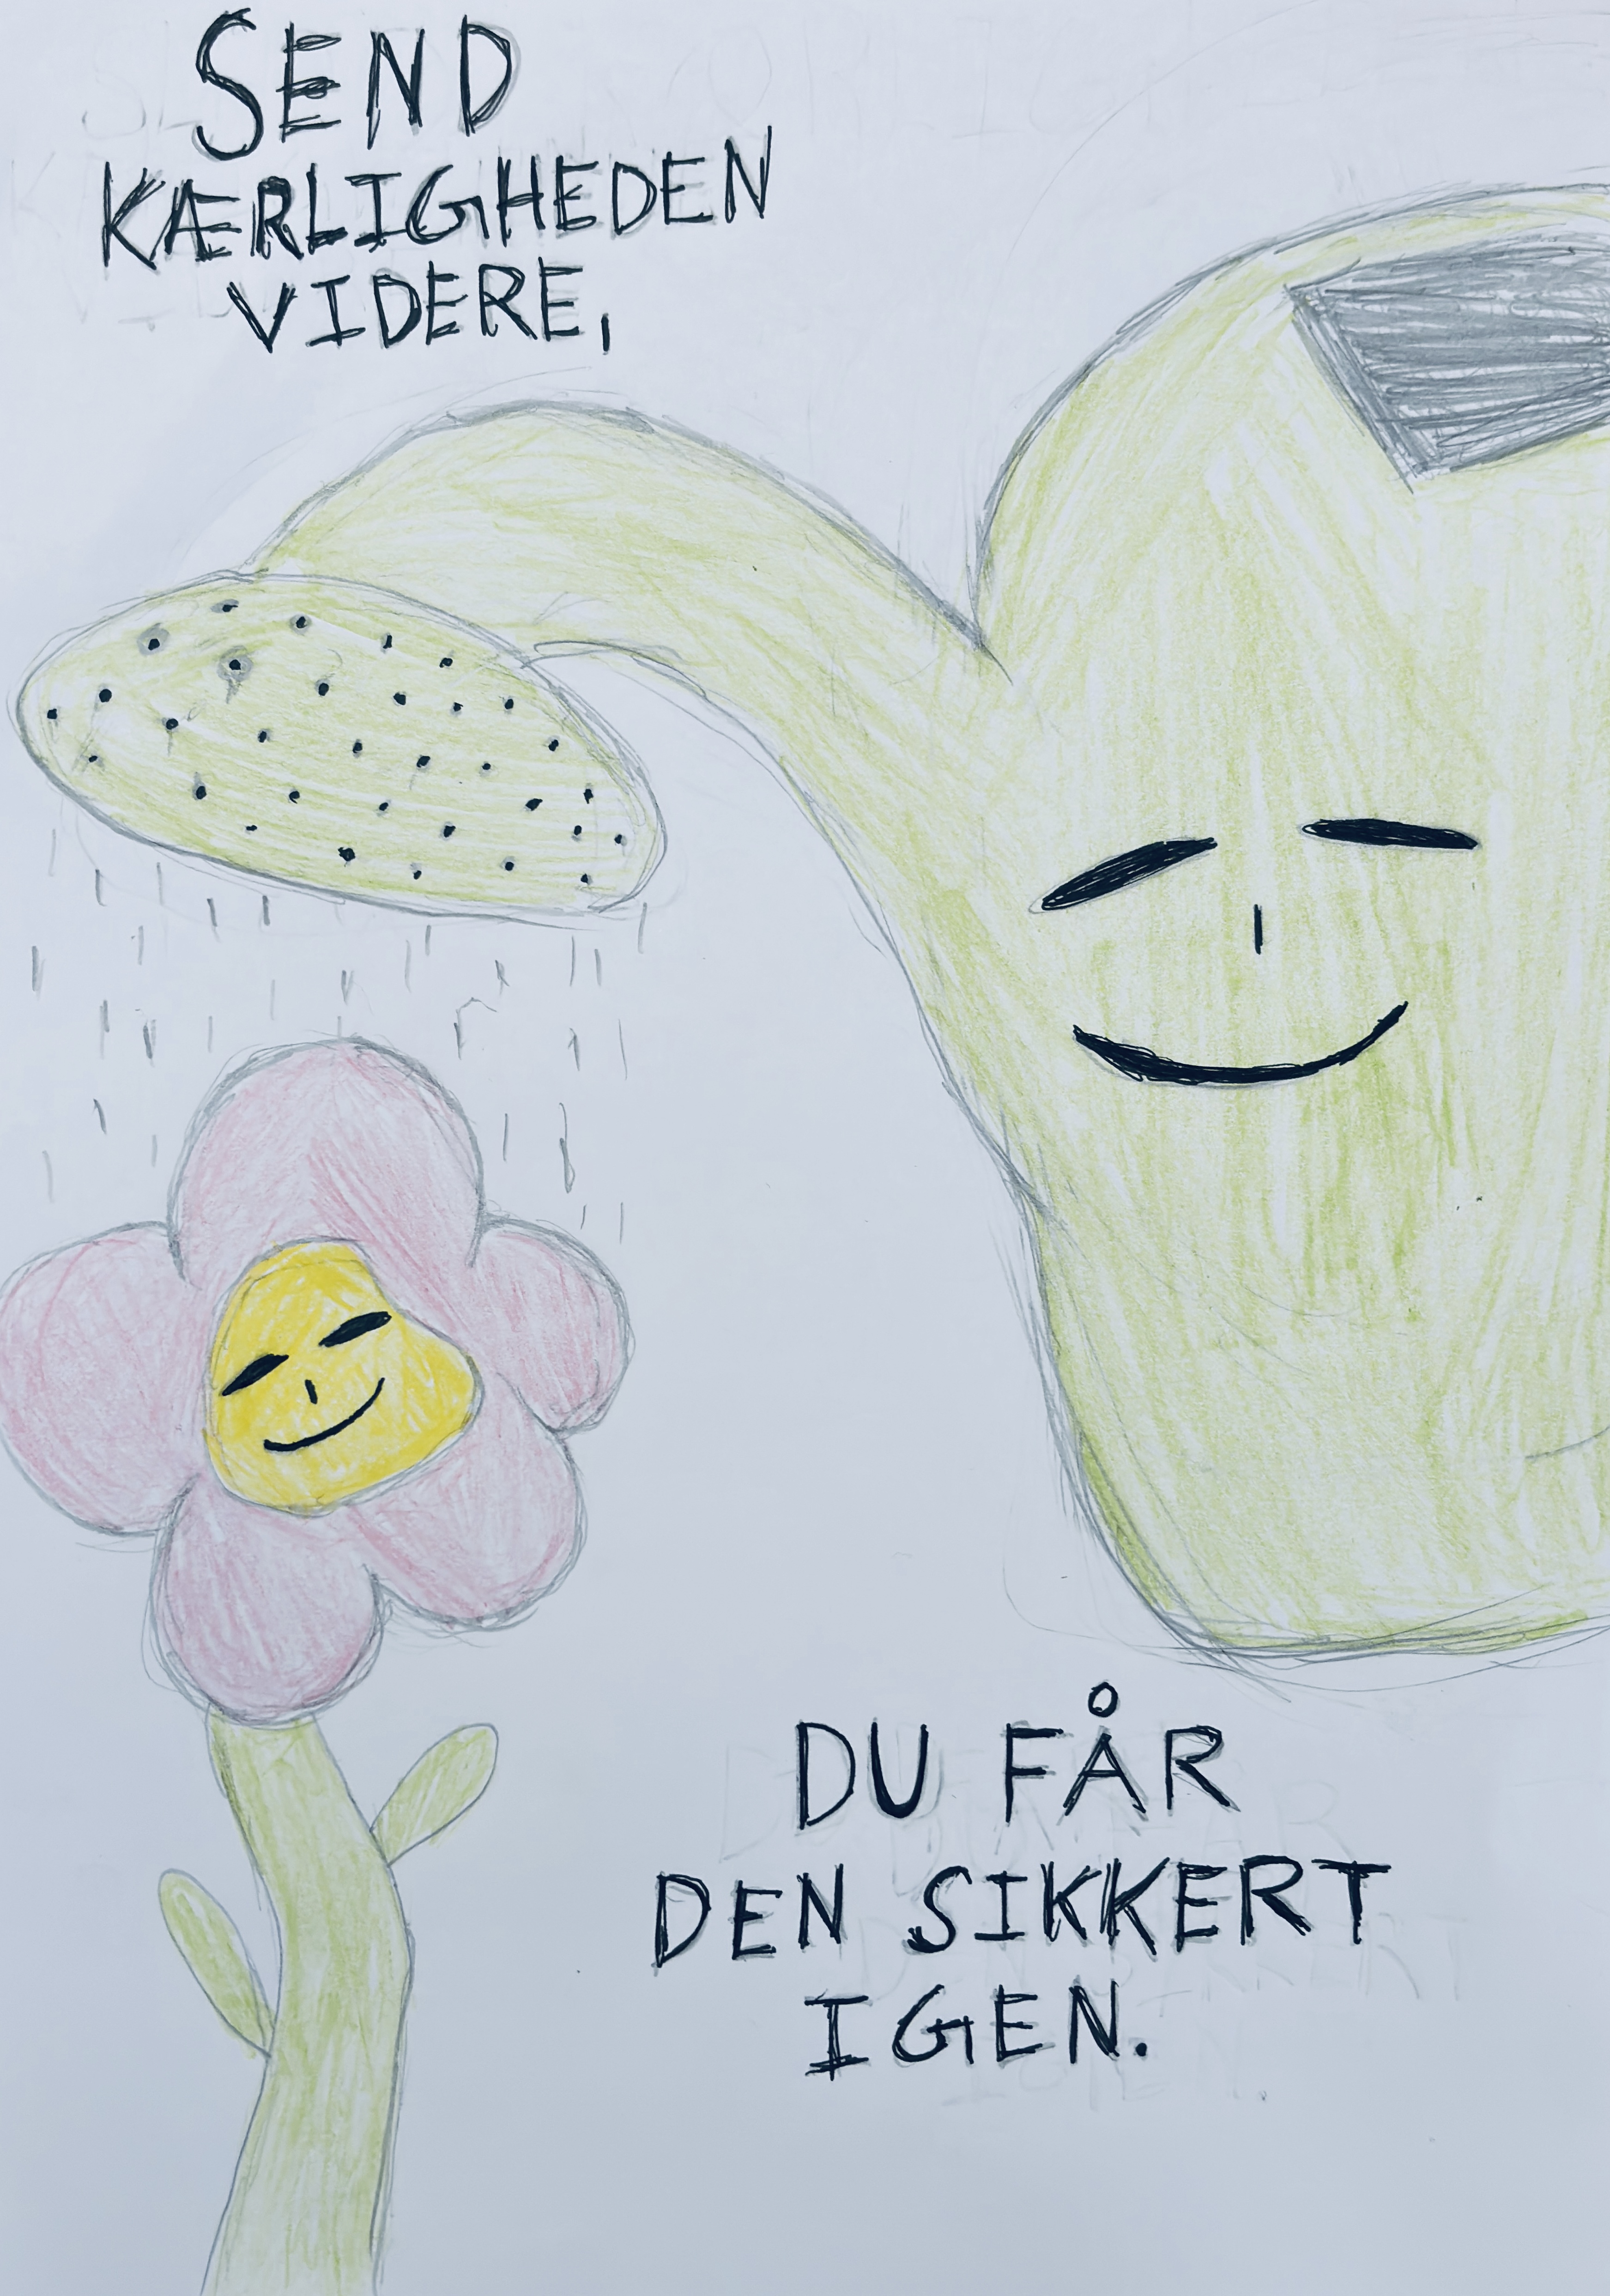 SEND
KÆRLIGHEDEN
VIDERE,
DU FÅR
DEN SIKKERT
IGEN.